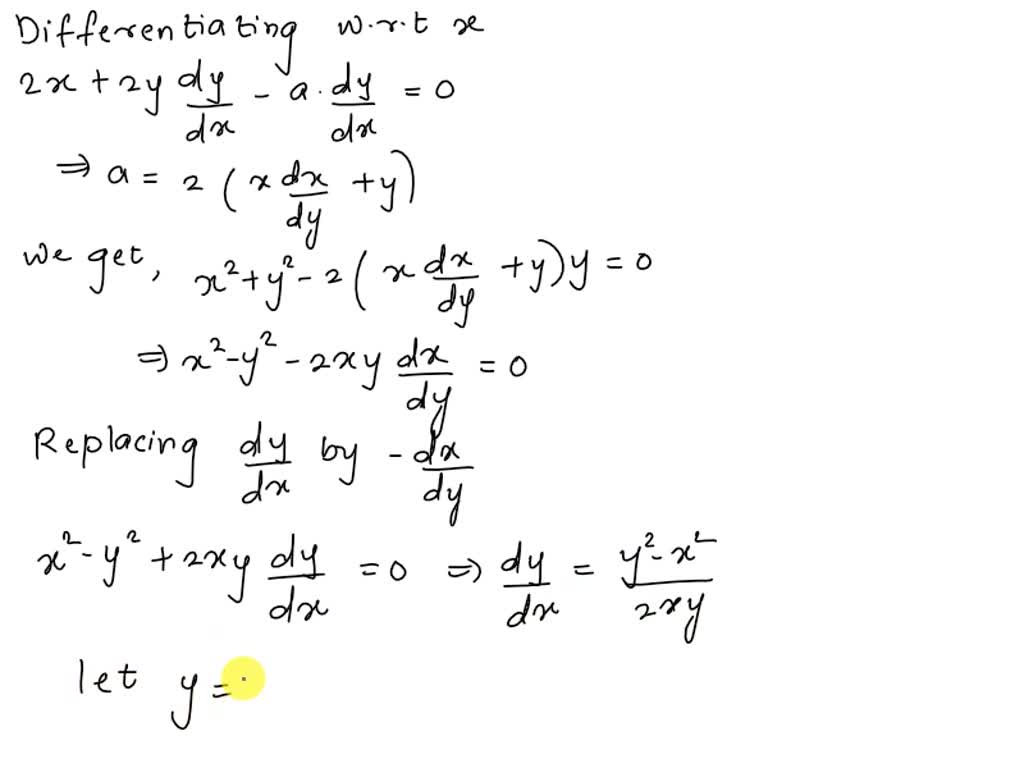 Differentiating w.r.t x
2x + 2y dy/dx - a . dy/dx = 0
⇒ a = 2 ( x dx/dy + y )
we get, x² + y² - 2 ( x dx/dy + y ) y = 0
⇒ x² - y² - 2xy dx/dy = 0
Replacing dy/dx by - dx/dy
x² - y² + 2xy dy/dx = 0 ⇒ dy/dx = y² - x² / 2xy
let y =